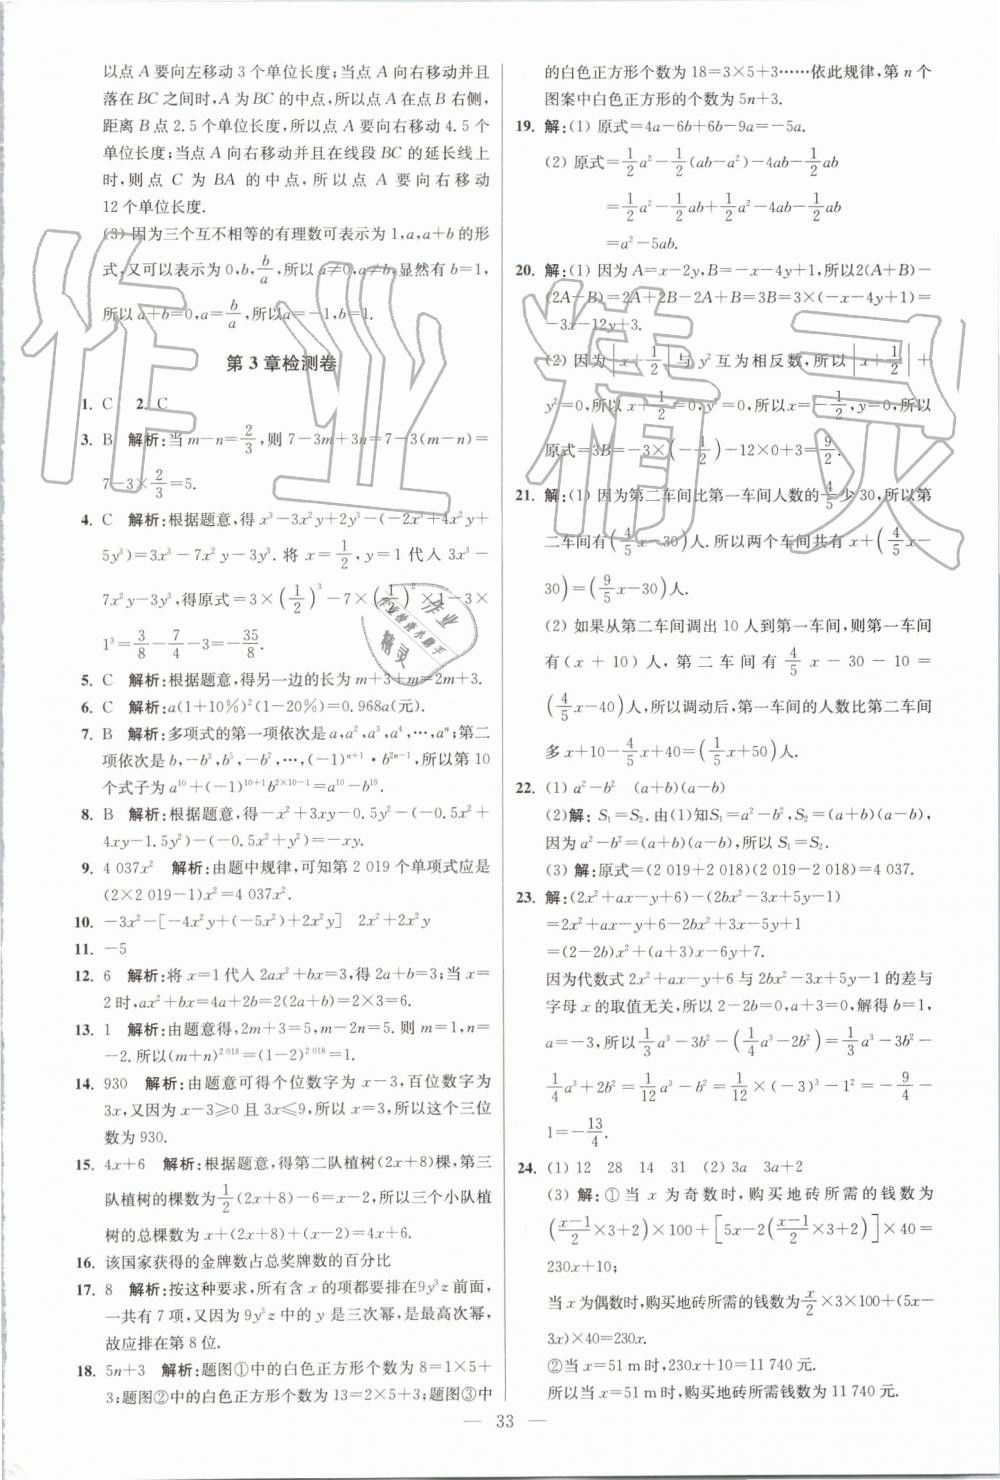 以点 A 要向左移动 3 个单位长度;当点 A 向右移动并且
落在 BC 之间时,A 为 BC 的中点,所以点 A 在点 B 右侧,
距离 B 点 2.5 个单位长度,所以点 A 要向右移动 4.5 个
单位长度;当点 A 向右移动并且在线段 BC 的延长线上
时,则点 C 为 BA 的中点,所以点 A 要向右移动
12 个单位长度.
(3) 因为三个互不相等的有理数可表示为 1,a,a+b 的形
式,又可以表示为 0,b,b/a,所以 a≠0,a≠b,显然有 b=1,
所以 a+b=0,a=b/a,所以a=-1,b=1.
第 3 章检测卷
1. C 2. C
3. B 解析:当 m-n=2/3,则 7-3m+3n=7-3(m-n)=
7-3×2/3=5.
4. C 解析:根据题意,得 x³-3x²y+2y³-(-2x³+4x²y+
5y³)=3x³-7x²y-3y³. 将 x=1/2,y=1 代入 3x³-
7x²y-3y³,得原式=3×(1/2)³-7×(1/2)²×1-3×
1³=3/8-7/4-3=-35/8.
5. C 解析:根据题意,得另一边的长为 m+3+m=2m+3.
6. C 解析:a(1+10%)²(1-20%)=0.968a(元).
7. B 解析:多项式的第一项依次是 a,a²,a³,a⁴,…,aⁿ;第二
项依次是 b,-b³,b⁵,-b⁷,…,(-1)ⁿ⁺¹·b²ⁿ⁻¹,所以第 10
个式子为 a¹⁰+(-1)¹⁰⁺¹b²ˣ¹⁰⁻¹=a¹⁰-b¹⁹.
8. B 解析:根据题意,得-x²+3xy-0.5y²-(-0.5x²+
4xy-1.5y²)-(-0.5x²+y²)=-xy.
9. 4 037x² 解析:由题中规律,可知第 2 019 个单项式应是
(2×2 019-1)x²=4 037x².
10. -3x²-[-4x²y+(-5x²)+2x²y] 2x²+2x²y
11. -5
12. 6 解析:将 x=1 代入 2ax²+bx=3,得 2a+b=3;当 x=
2 时,ax²+bx=4a+2b=2(2a+b)=2×3=6.
13. 1 解析:由题意得,2m+3=5,m-2n=5. 则 m=1,n=
-2. 所以(m+n)²⁰¹⁸=(1-2)²⁰¹⁸=1.
14. 930 解析:由题意可得个位数字为 x-3,百位数字为
3x,又因为 x-3≥0 且 3x≤9,所以 x=3,所以这个三位
数为 930.
15. 4x+6 解析:根据题意,得第二队植树(2x+8)棵,第三
队植树的棵数为1/2(2x+8)-6=x-2,所以三个小队植
树的总棵数为 x+(2x+8)+(x-2)=4x+6.
16. 该国家获得的金牌数占总奖牌数的百分比
17. 8 解析:按这种要求,所有含 x 的项都要排在9y³z 前面,
一共有 7 项,又因为 9y³z 中的 y 是三次幂,是最高次幂,
故应排在第 8 位.
18. 5n+3 解析:题图①中的白色正方形个数为 8=1×5+
3;题图②中的白色正方形个数为 13=2×5+3;题图③中
的白色正方形个数为 18=3×5+3……依此规律,第 n 个
图案中白色正方形的个数为 5n+3.
19. 解:(1) 原式=4a-6b+6b-9a=-5a.
(2) 原式=1/2a²-1/2(ab-a²)-4ab-1/2ab
=1/2a²-1/2ab+1/2a²-4ab-1/2ab
=a²-5ab.
20. 解:(1) 因为 A=x-2y,B=-x-4y+1,所以2(A+B)-
(2A-B)=2A+2B-2A+B=3B=3×(-x-4y+1)=
-3x-12y+3.
(2) 因为|x+1/2|与 y²互为相反数,所以|x+1/2|+
y²=0,所以 x+1/2=0,y²=0,所以x=-1/2,y=0,所以
原式=3B=-3×(-1/2)-12×0+3=9/2.
21. 解:(1) 因为第二车间比第一车间人数的4/5少 30,所以第
二车间有(4/5x-30)人. 所以两个车间共有 x+(4/5x-
30)=(9/5x-30)人.
(2) 如果从第二车间调出 10 人到第一车间,则第一车间
有(x+10)人,第二车间有4/5x-30-10=
(4/5x-40)人,所以调动后,第一车间的人数比第二车间
多 x+10-4/5x+40=(1/5x+50)人.
22. (1) a²-b² (a+b)(a-b)
(2)解: S₁=S₂. 由(1)知S₁=a²-b²,S₂=(a+b)(a-b),
因为 a²-b²=(a+b)(a-b),所以 S₁=S₂.
(3) 解:原式=(2 019+2 018)(2 019-2 018)=4 037.
23. 解:(2x²+ax-y+6)-(2bx²-3x+5y-1)
=2x²+ax-y+6-2bx²+3x-5y+1
=(2-2b)x²+(a+3)x-6y+7.
因为代数式 2x²+ax-y+6 与 2bx²-3x+5y-1 的差与
字母 x 的取值无关,所以 2-2b=0,a+3=0,解得 b=1,
a=-3,所以1/3a³-3b²-(1/4a³-2b²)=1/3a³-3b²-
1/4a³+2b²=1/12a³-b²=1/12×(-3)³-1²=-9/4-
1=-13/4.
24. (1) 12 28 14 31 (2) 3a 3a+2
(3) 解:①当 x 为奇数时,购买地砖所需的钱数为
((x-1)/2×3+2)×100+[5x-2((x-1)/2×3+2)]×40=
230x+10;
当 x为偶数时,购买地砖所需的钱数为x/2×3×100+(5x-
3x)×40=230x.
②当 x=51 m时,230x+10=11 740 元.
所以当 x=51 m时,购买地砖所需钱数为 11 740 元.
— 33 —
作业精灵
作业检查小助手
作业
精灵